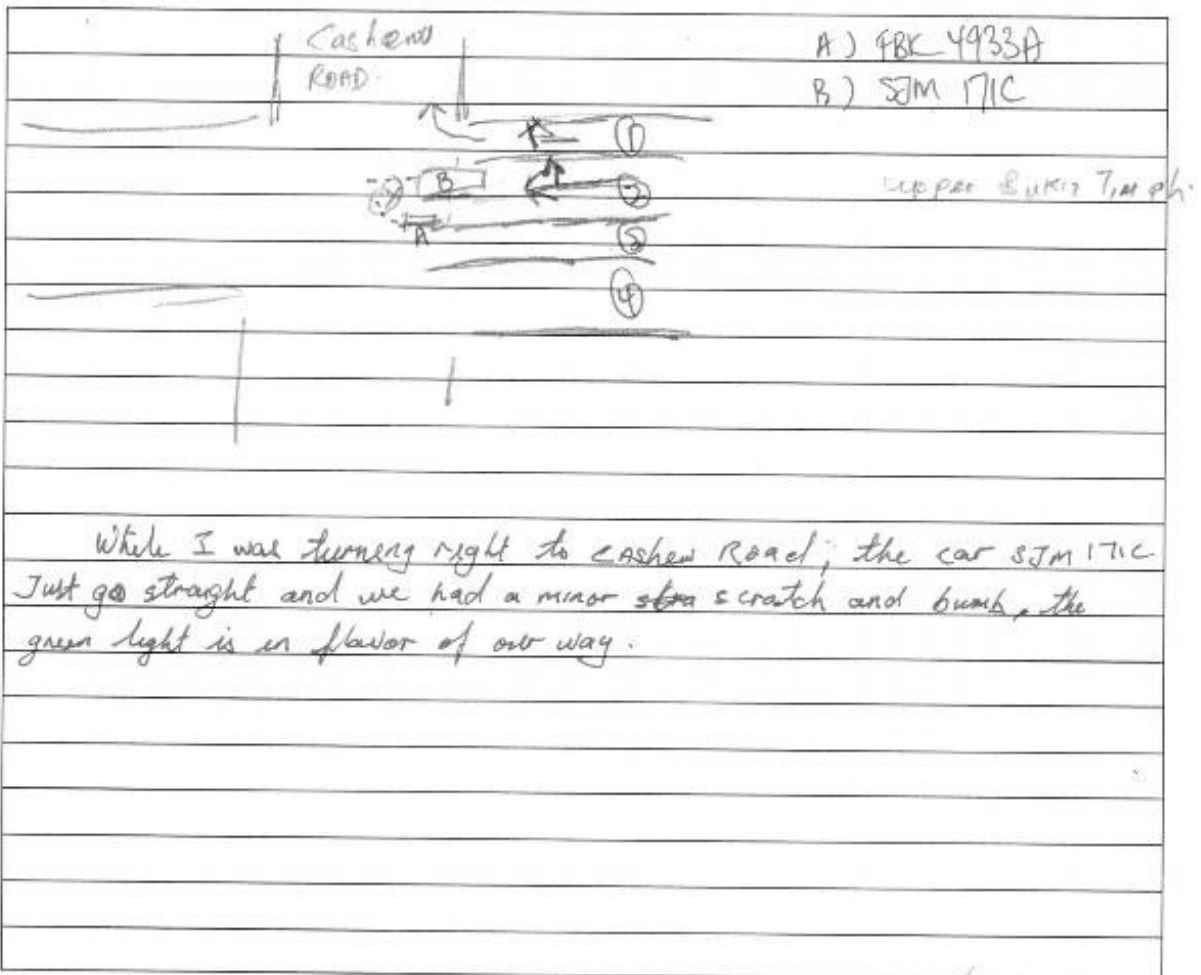 Cashew
ROAD.
A) FBK 4933A
B) SJM 171C
①
B
A
④
While I was turning right to CAshew Road, the car SJM 171C
Just go straight and we had a minor scratch and bumb, the
green light is in flavor of our way.